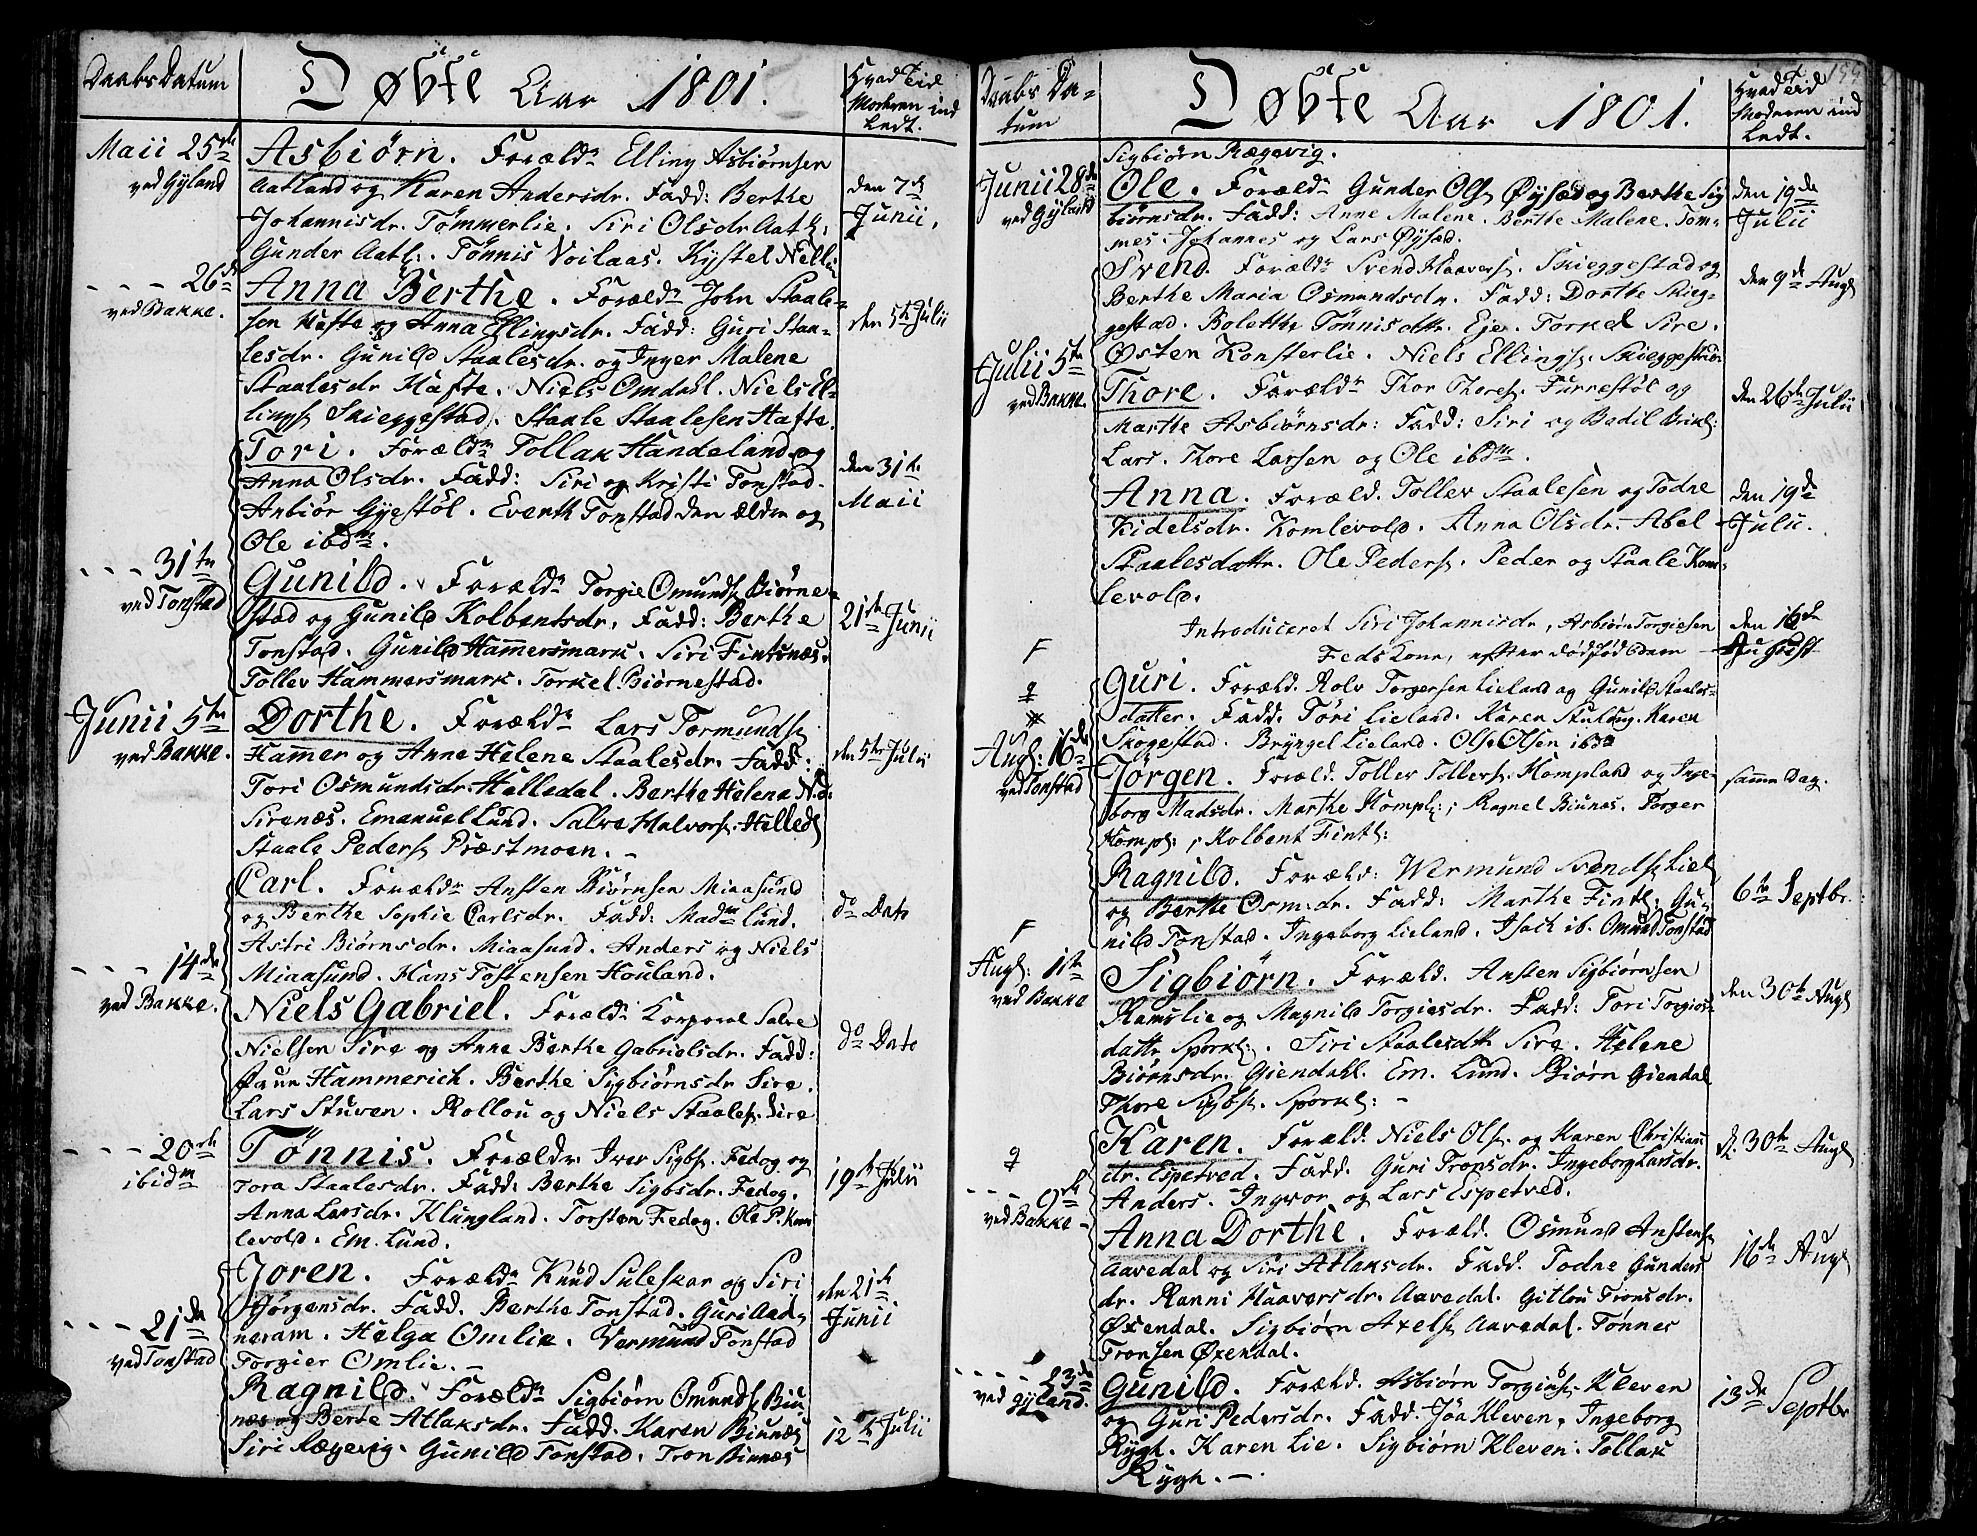 Daabs Datum
Døbte Aar 1801.
Hvad Tid
Moderen ind
ledt.
Maii 25de
ved Gyland
Asbiørn. Foræld: Elling Asbiørnsen
Aatland og Karen Andersdr. Fadd: Berthe
Johannisdr. Tømmerlie. Siri Olsdr Aatl:
Gunder Aatl:. Tønnis Voilaas. Kystel Nelli
den 7de
Junii.
- - - - 26de
ved Bakke.
Anna Berthe. Foræld: John Staale-
sen Hafte og Anna Ellingsdr. Fadd: Guri Staa-
lesdr. Gunild Staalesdr. og Inger Malene
Staalesdr Hafte. Niels Omdahl. Niels El-
lings: Skieggestad. Staale Staalesen Hafte.
den 5te Julii
Tori. Forældre Tollak Handeland og
Anna Olsdr. Fadd: Siri og Kristi Tonstad.
Anbiør Gyestøl. Evert Tonstad den ældre og
Ole ibdm.
den 31te
Maii
- - - 31te
ved Tonstad
Gunild. Foræld: Torgie Omunds: Biørne-
stad og Gunild Kolbentsdr. Fadd: Berthe
Tonstad. Gunild Hammersmark. Siri Fintsnæs.
Tollev Hammersmark. Torkel Biørnestad.
21de Junii
Junii 5te
ved Bakke.
Dorthe. Foræld: Lars Tormunds:
Hammer og Anne Helene Staalesdr. Fadd:
Tori Osmundsdr. Halledal. Berthe Helena
Sirenæs. Emanuel Lund. Salve Halvors: Helled:
Staale Peders: Præstmoen. -
den 5te Julii
Carl. Foræld: Ansten Biørnsen Miaasund
og Berthe Sophie Carlsdr. Fadd: Madm Lund.
Astri Biørnsdr. Miaasund. Anders og Niels
Miaasund. Hans Tostensen Houland.
do Dato
- - - - 14de
ved Bakke.
Niels Gabriel. Foræld: Korporal Salve
Nielsen Sire og Anne Berthe Gabrielsdr. Fadd:
Hammerich. Berthe Sigbiørnsdr Sire.
Lars Stuven. Rollou og Niels Staales: Sire
do Dato
- - - 20de
ibidm
Tønnis. Forældr. Iver Sigbs: Fedog og
Tora Staalesdr. Fadd: Berthe Sigbsdr. Fedog.
Anna Larsdr. Klungland. Torsten Fedog. Ole P. Kom
levold. Em. Lund.
19de Julii
- - - 21de
ved Tonstad
Joren. Foræld: Knud Suleskar og Siri
Jørgensdr. Fadd. Berthe Tonstad. Guri Aad-
neram. Helga Omlie. Vermund Tonstad
Torgier Omlie. -
den 21de
Junii
Ragnild. Foræld: Sigbiørn Omunds: Biu
næs og Berte Atlaksdr. Fadd. Karen Biunæs
Siri Rægevig. Gunild Tonstad. Tron Biunæs
12te Julii
155
Daabs Da-
tum
Døbte Aar 1801.
Hvad Tid
Moderen ind
ledt.
Sigbiørn Rægevig.
Junii 28de
ved Gyland
Ole. Foræld: Gunder Ols: Øysæd og Berthe Sig
biørnsdr. Fadd: Anne Malene. Berthe Malene. Tom-
mes. Johannes og Lars Øysæd.
den 19de
Julii
Svend. Foræld: Svend Haavers: Skieggestad og
Berthe Maria Osmundsdr. Fadd: Dorthe Skieg-
gestad. Bolette Tønnisdtr. Eje. Torkel Sire.
Østen Konsterlie. Niels Ellings: Skieggestad.
den 9de Aug:
Julii 5te
ved Bakke.
Thore. Foræld: Thor Thores: Furrestøl og
Marthe Asbiørnsdr: Fadd: Siri og Bodil Birkl:
Lars. Thore Larsen og Ole ibdm.
den 26de Julii
Anna. Foræld. Tollev Staalesen og Todne
Kidelsdr. Komlevold. Anna Olsdr. Abel
Staalesdattr. Ole Peders: Peder og Staale Kom-
levold.
den 19de
Julii.
Introduceret Siri Johannisdr, Asbiørn Torgiesen
Feds Kone, efter dødfød Barn
den 16de
August
F
Guri. Foræld. Rolv Torgersen Lieland og Gunild Staales-
datter. Fadd. Tori Lieland. Karen Stulaug. Karen
Skogestad. Bryngel Lieland. Ole Olsen ibd
Aug: 16de
ved Tonstad
Jørgen. Foræld. Tollev Tollevs: Kompland og Inge-
borg Madsdr. Marthe Kompl:; Ragnel Biunæs. Torger
Kompl:; Kolbent Fintl:
samme Dag.
Ragnild. Foræld: Wermund Svends: Liel
og Berthe Osm:dr. Fadd: Marthe Fintl: Gu-
nild Tonstad. Ingeborg Lieland. Isach ib. Omund Tonstad
6te Septbr.
F
Aug: 11te
ved Bakke
Sigbiørn. Foræld. Ansten Sigbiørnsen
Ramslie og Magnild Torgiesdr. Fadd: Tori Torgies-
dattr Sporkl:. Siri Staalesdtr Sire. Helene
Biørnsdr. Giendahl. Em. Lund. Biørn Giendal
Thore Sigbs: Sporkl: -
den 30te Aug:
- - - 9de
ved Bakke -
Karen. Foræld. Niels Ols: og Karen Christians
dr. Espetved. Fadd. Guri Tronsdr. Ingeborg Larsdr.
Anders. Ingvor og Lars Espetved.
d. 30te Aug:
Anna Dorthe. Foræld. Osmund Anstens:
Aavedal og Siri Atlaksdr. Fadd. Todne Gunders
dr. Ranni Haaversdr. Aavedal. Gitlou Tronsdr.
Øxendal. Sigbiørn Axels: Aavedal. Tønnes
Tronsen Øxendal.
16de Aug:
- - - - 23de
ved Gyland.
Gunild. Foræld. Asbiørn Torgius: Kleven
og Guri Pedersdr. Fadd. Jøa Kleven, Ingeborg
Rygh. Karen Lie. Sigbiørn Kleven. Tollak
Rygh. -
13de Septbr